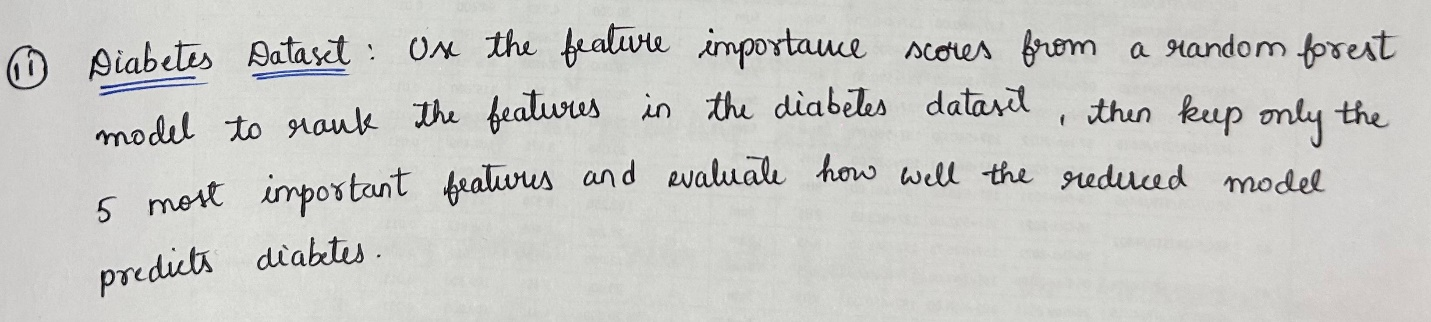 (ii) Diabetes Dataset : Use the feature importance scores from a random forest
model to rank the features in the diabetes dataset , then keep only the
5 most important features and evaluate how well the reduced model
predicts diabetes .